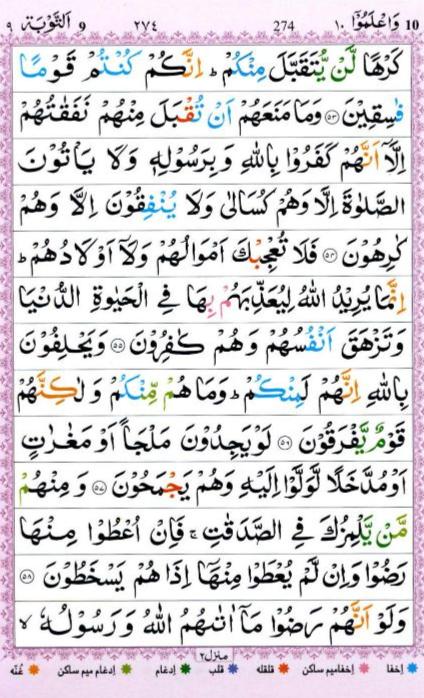 وَاعْلَمُوْٓا ١٠ 10 274 ٢٧٤ اَلتَّوْبَة ٩ 9
كَرْهًا لَّنْ يُّتَقَبَّلَ مِنْكُمْ ؕ اِنَّكُمْ كُنْتُمْ قَوْمًا
فٰسِقِيْنَ ۝٥٣ وَمَا مَنَعَهُمْ اَنْ تُقْبَلَ مِنْهُمْ نَفَقٰتُهُمْ
اِلَّاۤ اَنَّهُمْ كَفَرُوْا بِاللّٰهِ وَبِرَسُوْلِهٖ وَلَا يَاْتُوْنَ
الصَّلٰوةَ اِلَّا وَهُمْ كُسَالٰى وَلَا يُنْفِقُوْنَ اِلَّا وَهُمْ
كٰرِهُوْنَ ۝٥٤ فَلَا تُعْجِبْكَ اَمْوَالُهُمْ وَلَاۤ اَوْلَادُهُمْ ؕ
اِنَّمَا يُرِيْدُ اللّٰهُ لِيُعَذِّبَهُمْ بِهَا فِى الْحَيٰوةِ الدُّنْيَا
وَتَزْهَقَ اَنْفُسُهُمْ وَهُمْ كٰفِرُوْنَ ۝٥٥ وَيَحْلِفُوْنَ
بِاللّٰهِ اِنَّهُمْ لَمِنْكُمْ ؕ وَمَا هُمْ مِّنْكُمْ وَلٰكِنَّهُمْ
قَوْمٌ يَّفْرَقُوْنَ ۝٥٦ لَوْ يَجِدُوْنَ مَلْجَاً اَوْ مَغٰرٰتٍ
اَوْ مُدَّخَلًا لَّوَلَّوْا اِلَيْهِ وَهُمْ يَجْمَحُوْنَ ۝٥٧ وَمِنْهُمْ
مَّنْ يَّلْمِزُكَ فِى الصَّدَقٰتِ ۚ فَاِنْ اُعْطُوْا مِنْهَا
رَضُوْا وَاِنْ لَّمْ يُعْطَوْا مِنْهَاۤ اِذَا هُمْ يَسْخَطُوْنَ ۝٥٨
وَلَوْ اَنَّهُمْ رَضُوْا مَاۤ اٰتٰىهُمُ اللّٰهُ وَرَسُوْلُهٗ ۙ
منزل٢
اخفا اخفامیم ساکن قلقله قلب ادغام ادغام میم ساکن غنّه